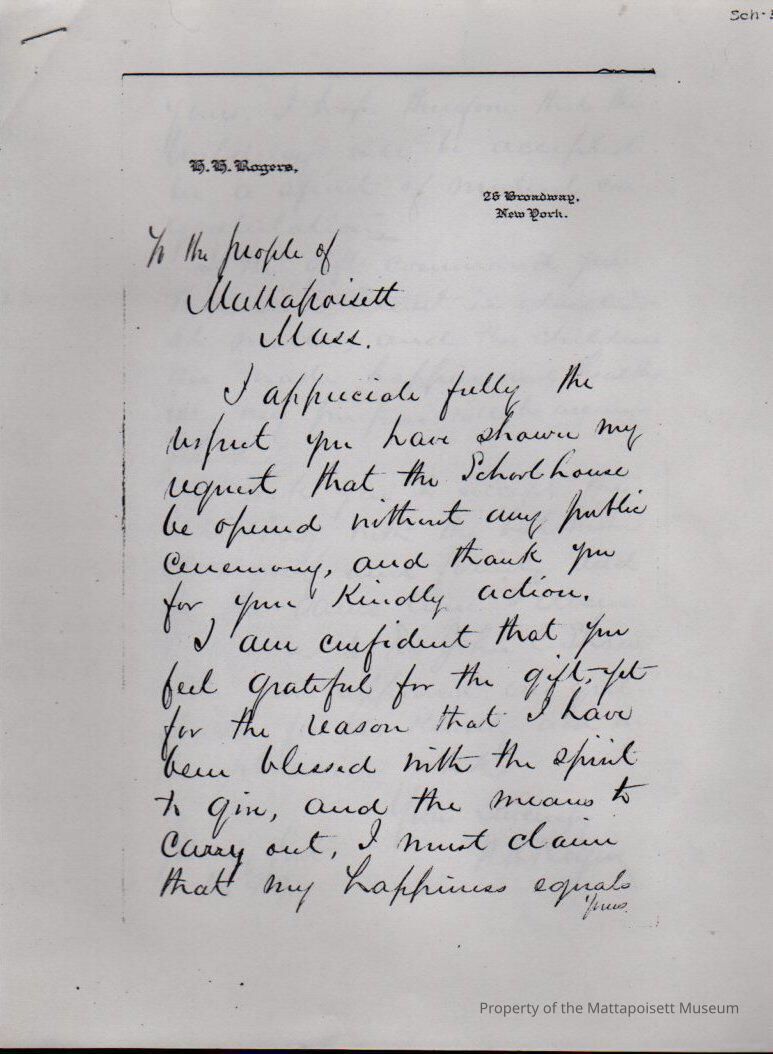 Sch-
H. H. Rogers,
26 Broadway.
New York.
To the people of
Mattapoisett
Mass.
I appreciate fully the
respect you have shown my
request that the Schoolhouse
be opened without any public
ceremony, and thank you
for your kindly action.
I am confident that you
feel grateful for the gift, yet
for the reason that I have
been blessed with the spirit
to give, and the means to
carry out, I must claim
that my happiness equals
yours.
Property of the Mattapoisett Museum